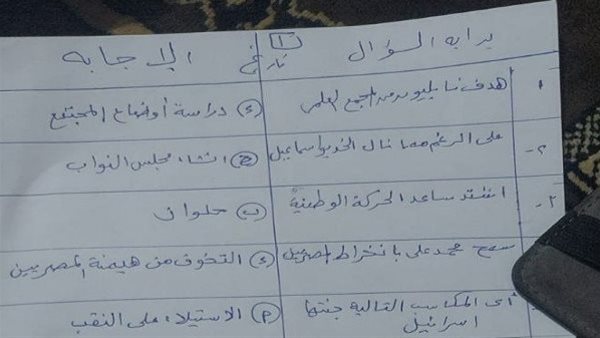 بداية السؤال [1] تاريخ الإجابة
1 هدف نابليون من المجمع العلمى (ء) دراسة أوضاع المجتمع
2- على الرغم مما نال الخديو اسماعيل (ج) انشاء مجلس النواب
3- اشتد ساعد الحركة الوطنية (ب) حلوان
سمح محمد على بانخراط المصريين (ء) التخوف من هيمنة المصريين
أى المكاسب التالية جنتها (م) الاستيلاء على النقب
اسرائيل